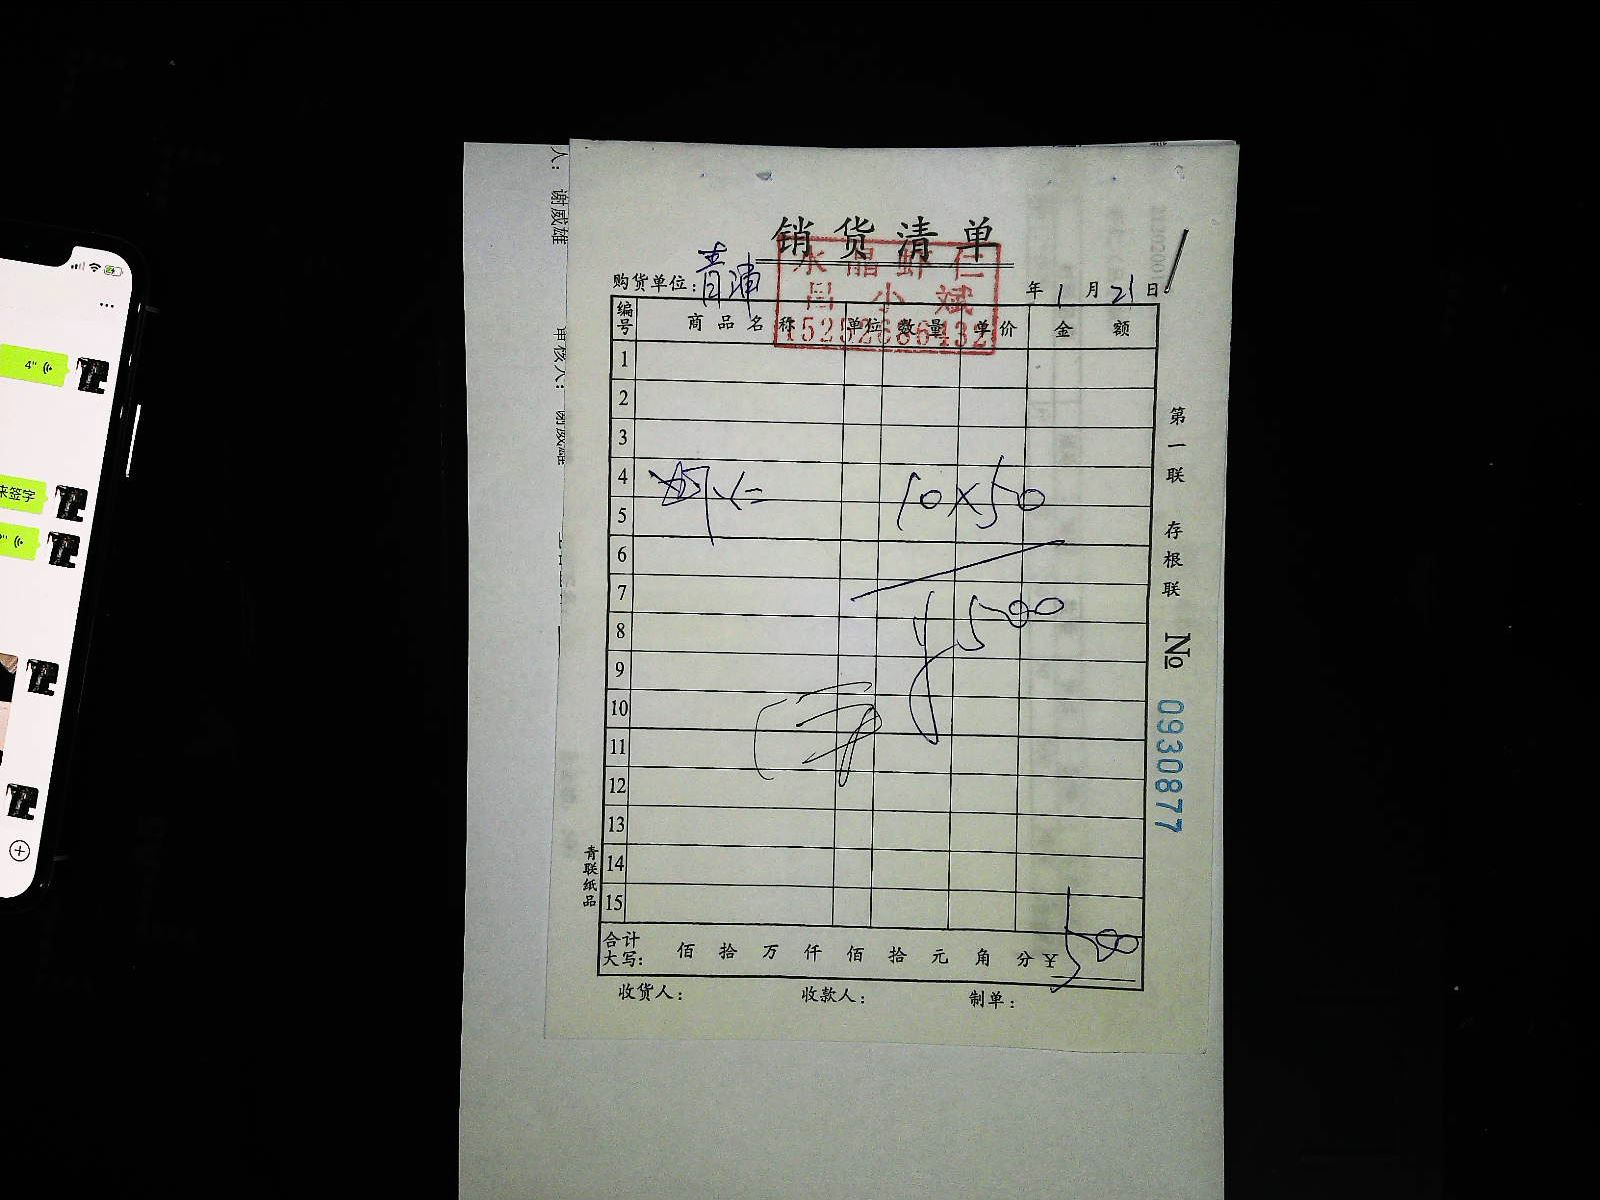 销货清单
水晶虾仁
吕小斌
15252686432
购货单位：青浦
年1月21日
编号 商品名称 单位 数量 单价 金额
1
2
3
4
虾仁 10×50
5
6
7
¥500
8
9
10
11
12
13
14
15
合计大写： 佰 拾 万 仟 佰 拾 元 角 分 ¥500
收货人： 收款人： 制单：
第一联 存根联
№ 0930877
青联纸品
人： 谢威雄
审核人： 谢威雄
4"
来签字